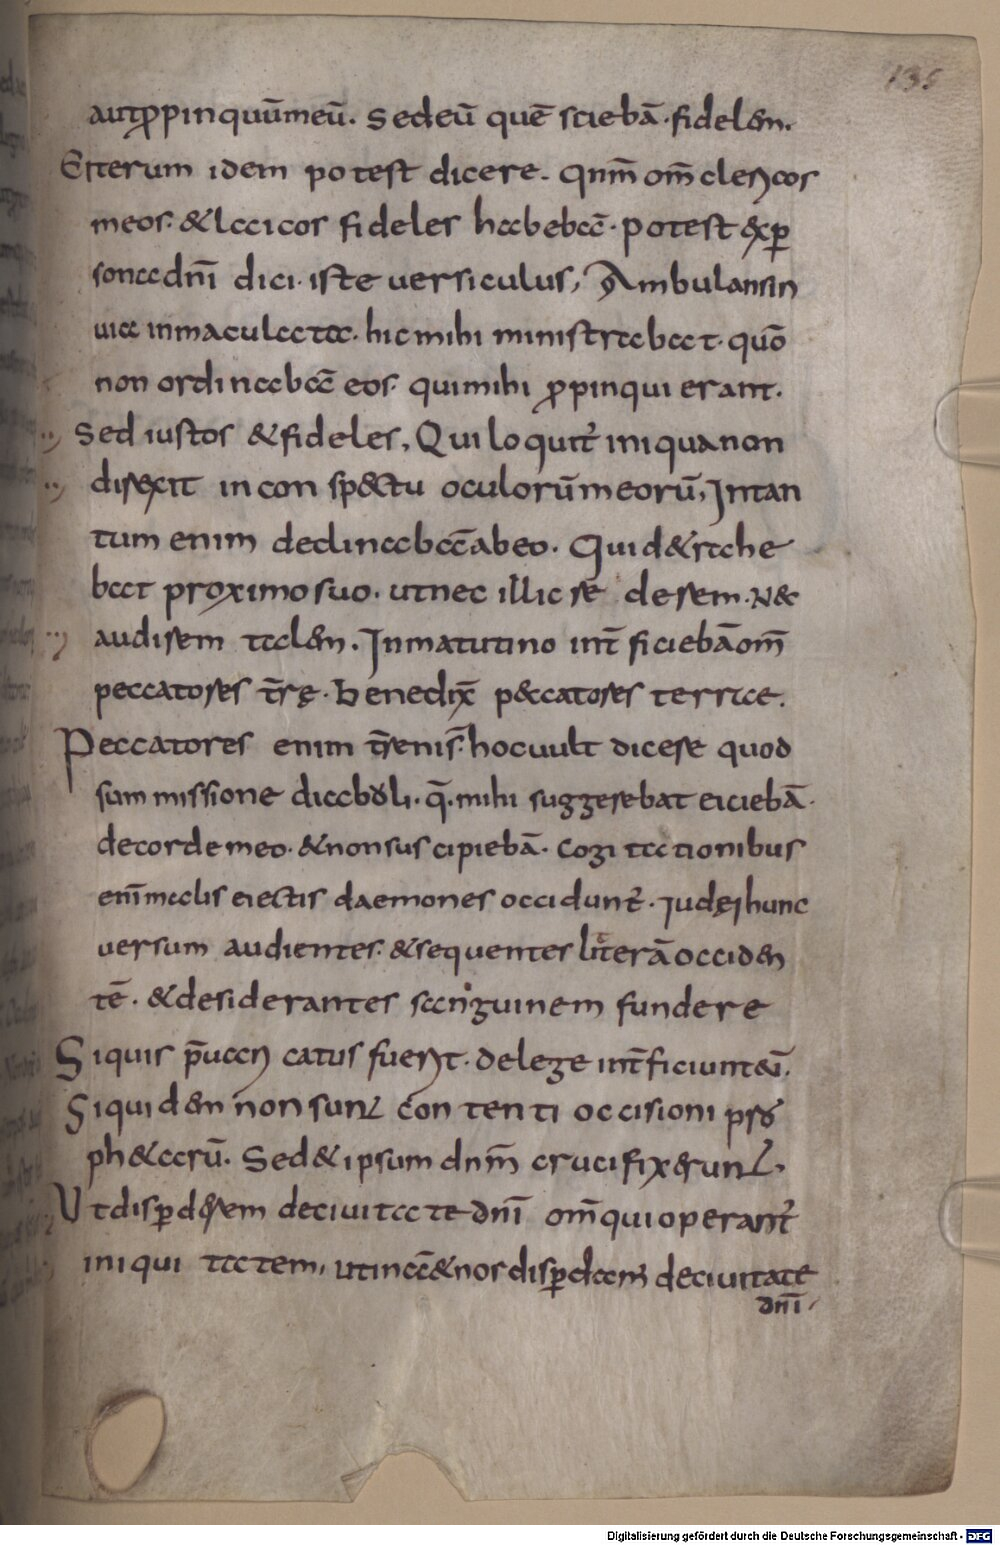 135
aut ꝓpinquū meū. Sed eū quē sciebā fidelem.
Et iterum idem potest dicere. Qnm̄ om̄ clericos
meos. & laicos fideles habebā. potest & ex ꝑ
sona dnī dici iste versiculus, Ambulans in
uia inmaculata. hic mihi ministrabat. quō
non ordinabā eos qui mihi ꝓpinqui erant.
Sed iustos & fideles, Qui loquit̄ iniqua non
direxit in conspectu oculorū meorū, In tan
tum enim declinabā ab eo. Qui detrahe
bat proximo suo. ut nec illic re derem. N&
audirem talem. In matutino int̄ficiebā om̄
peccatores t̄rę. Benedix̄ p&catores terrae.
Peccatores enim t̄renis. hoc uult dicere quod
summissione diaboli. q̄ mihi suggerebat eiciebā.
de corde meo. & non suscipiebā. Cogitationibus
enī malis eiectis daemones occidunt̄. Iudęi hunc
versum audientes. & sequentes litterā occiden
tē. & desiderantes sanguinem fundere
Si quis p̄uaricatus fuerit. de lege int̄ficiunt eū.
Siquidem non sunt contenti occisioni pro
ph&arū. Sed & ipsum dnm̄ crucifixerunt.
Ut disꝑderem de ciuitate dnī om̄ qui operant̄
iniquitatem, utinā & nos disꝑdam̄ de ciuitate
dnī
Digitalisierung gefördert durch die Deutsche Forschungsgemeinschaft - DFG